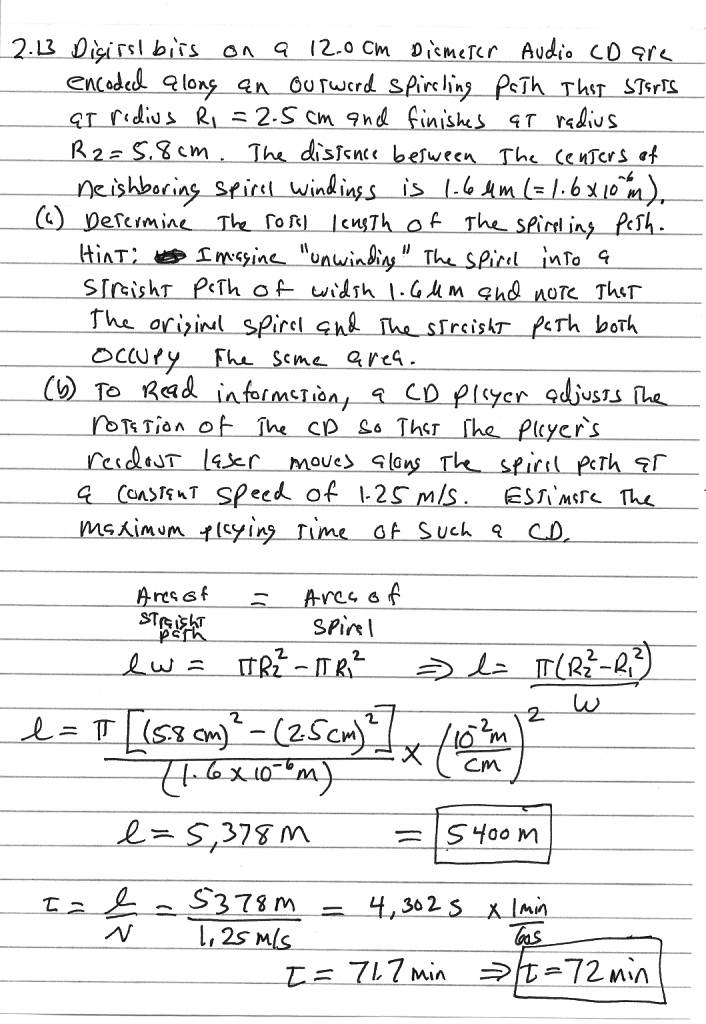 2.13 Digital bits on a 12.0 cm Diameter Audio CD are
encoded along an outward spiraling Path That starts
at radius R₁ = 2.5 cm and finishes at radius
R₂ = 5.8 cm. The distance between The centers of
neighboring spiral windings is 1.6 μm (= 1.6 x 10⁻⁶ m).
(a) Determine The total length of The spiraling Path.
Hint: Imagine "unwinding" The spiral into a
straight Path of width 1.6 μm and note That
The original spiral and The straight path both
occupy The same area.
(b) To Read information, a CD Player adjusts The
rotation of The CD so That The Player's
readout laser moves along The spiral path at
a constant speed of 1.25 m/s. Estimate The
maximum playing time of such a CD.
Area of = Area of
straight spiral
path
lw = πR₂² - πR₁² ⇒ l = π(R₂² - R₁²)
w
l = π [(5.8 cm)² - (2.5 cm)²] x (10⁻² m / cm)²
(1.6 x 10⁻⁶ m)
l = 5,378 m = 5400 m
t = l/v = 5378 m / 1.25 m/s = 4,302 s x 1 min / 60 s
t = 71.7 min ⇒ t = 72 min